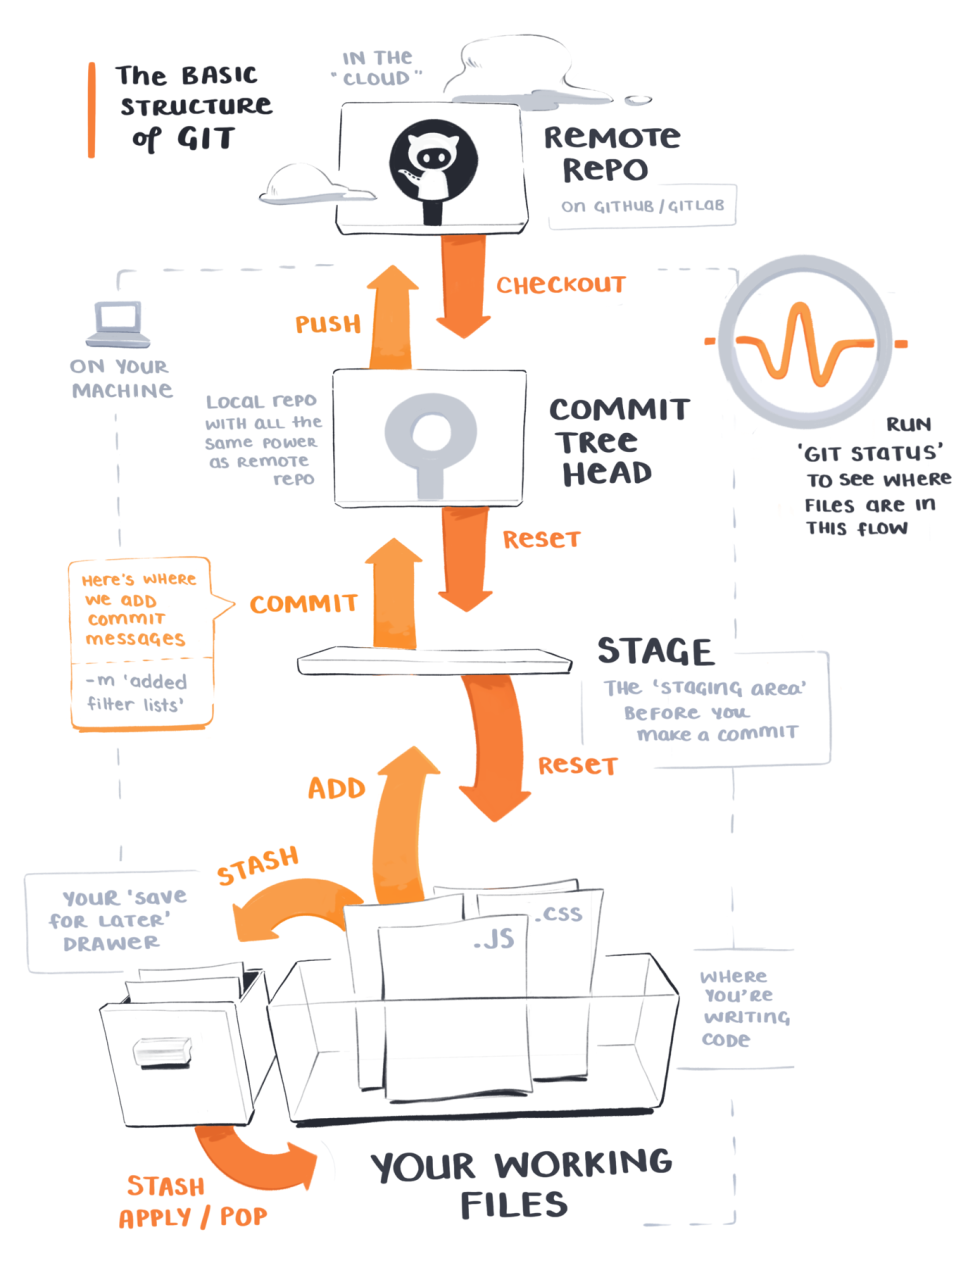 The BASIC
STRUCTURE
of GIT
IN THE
"CLOUD"
REMOTE
REPO
ON GITHUB/GITLAB
CHECKOUT
PUSH
ON YOUR
MACHINE
LOCAL REPO
WITH ALL the
SAME POWER
AS REMOTE
REPO
COMMIT
TREE
HEAD
RUN
'GIT STATUS'
TO SEE WHERE
FILES ARE IN
THIS FLOW
RESET
COMMIT
HERE'S WHERE
WE ADD
COMMIT
MESSAGES
-m 'added
filter lists'
STAGE
THE 'STAGING AREA'
BEFORE YOU
MAKE A COMMIT
RESET
ADD
STASH
YOUR 'SAVE
FOR LATER'
DRAWER
.JS
.CSS
WHERE
YOU'RE
WRITING
CODE
STASH
APPLY / POP
YOUR WORKING
FILES